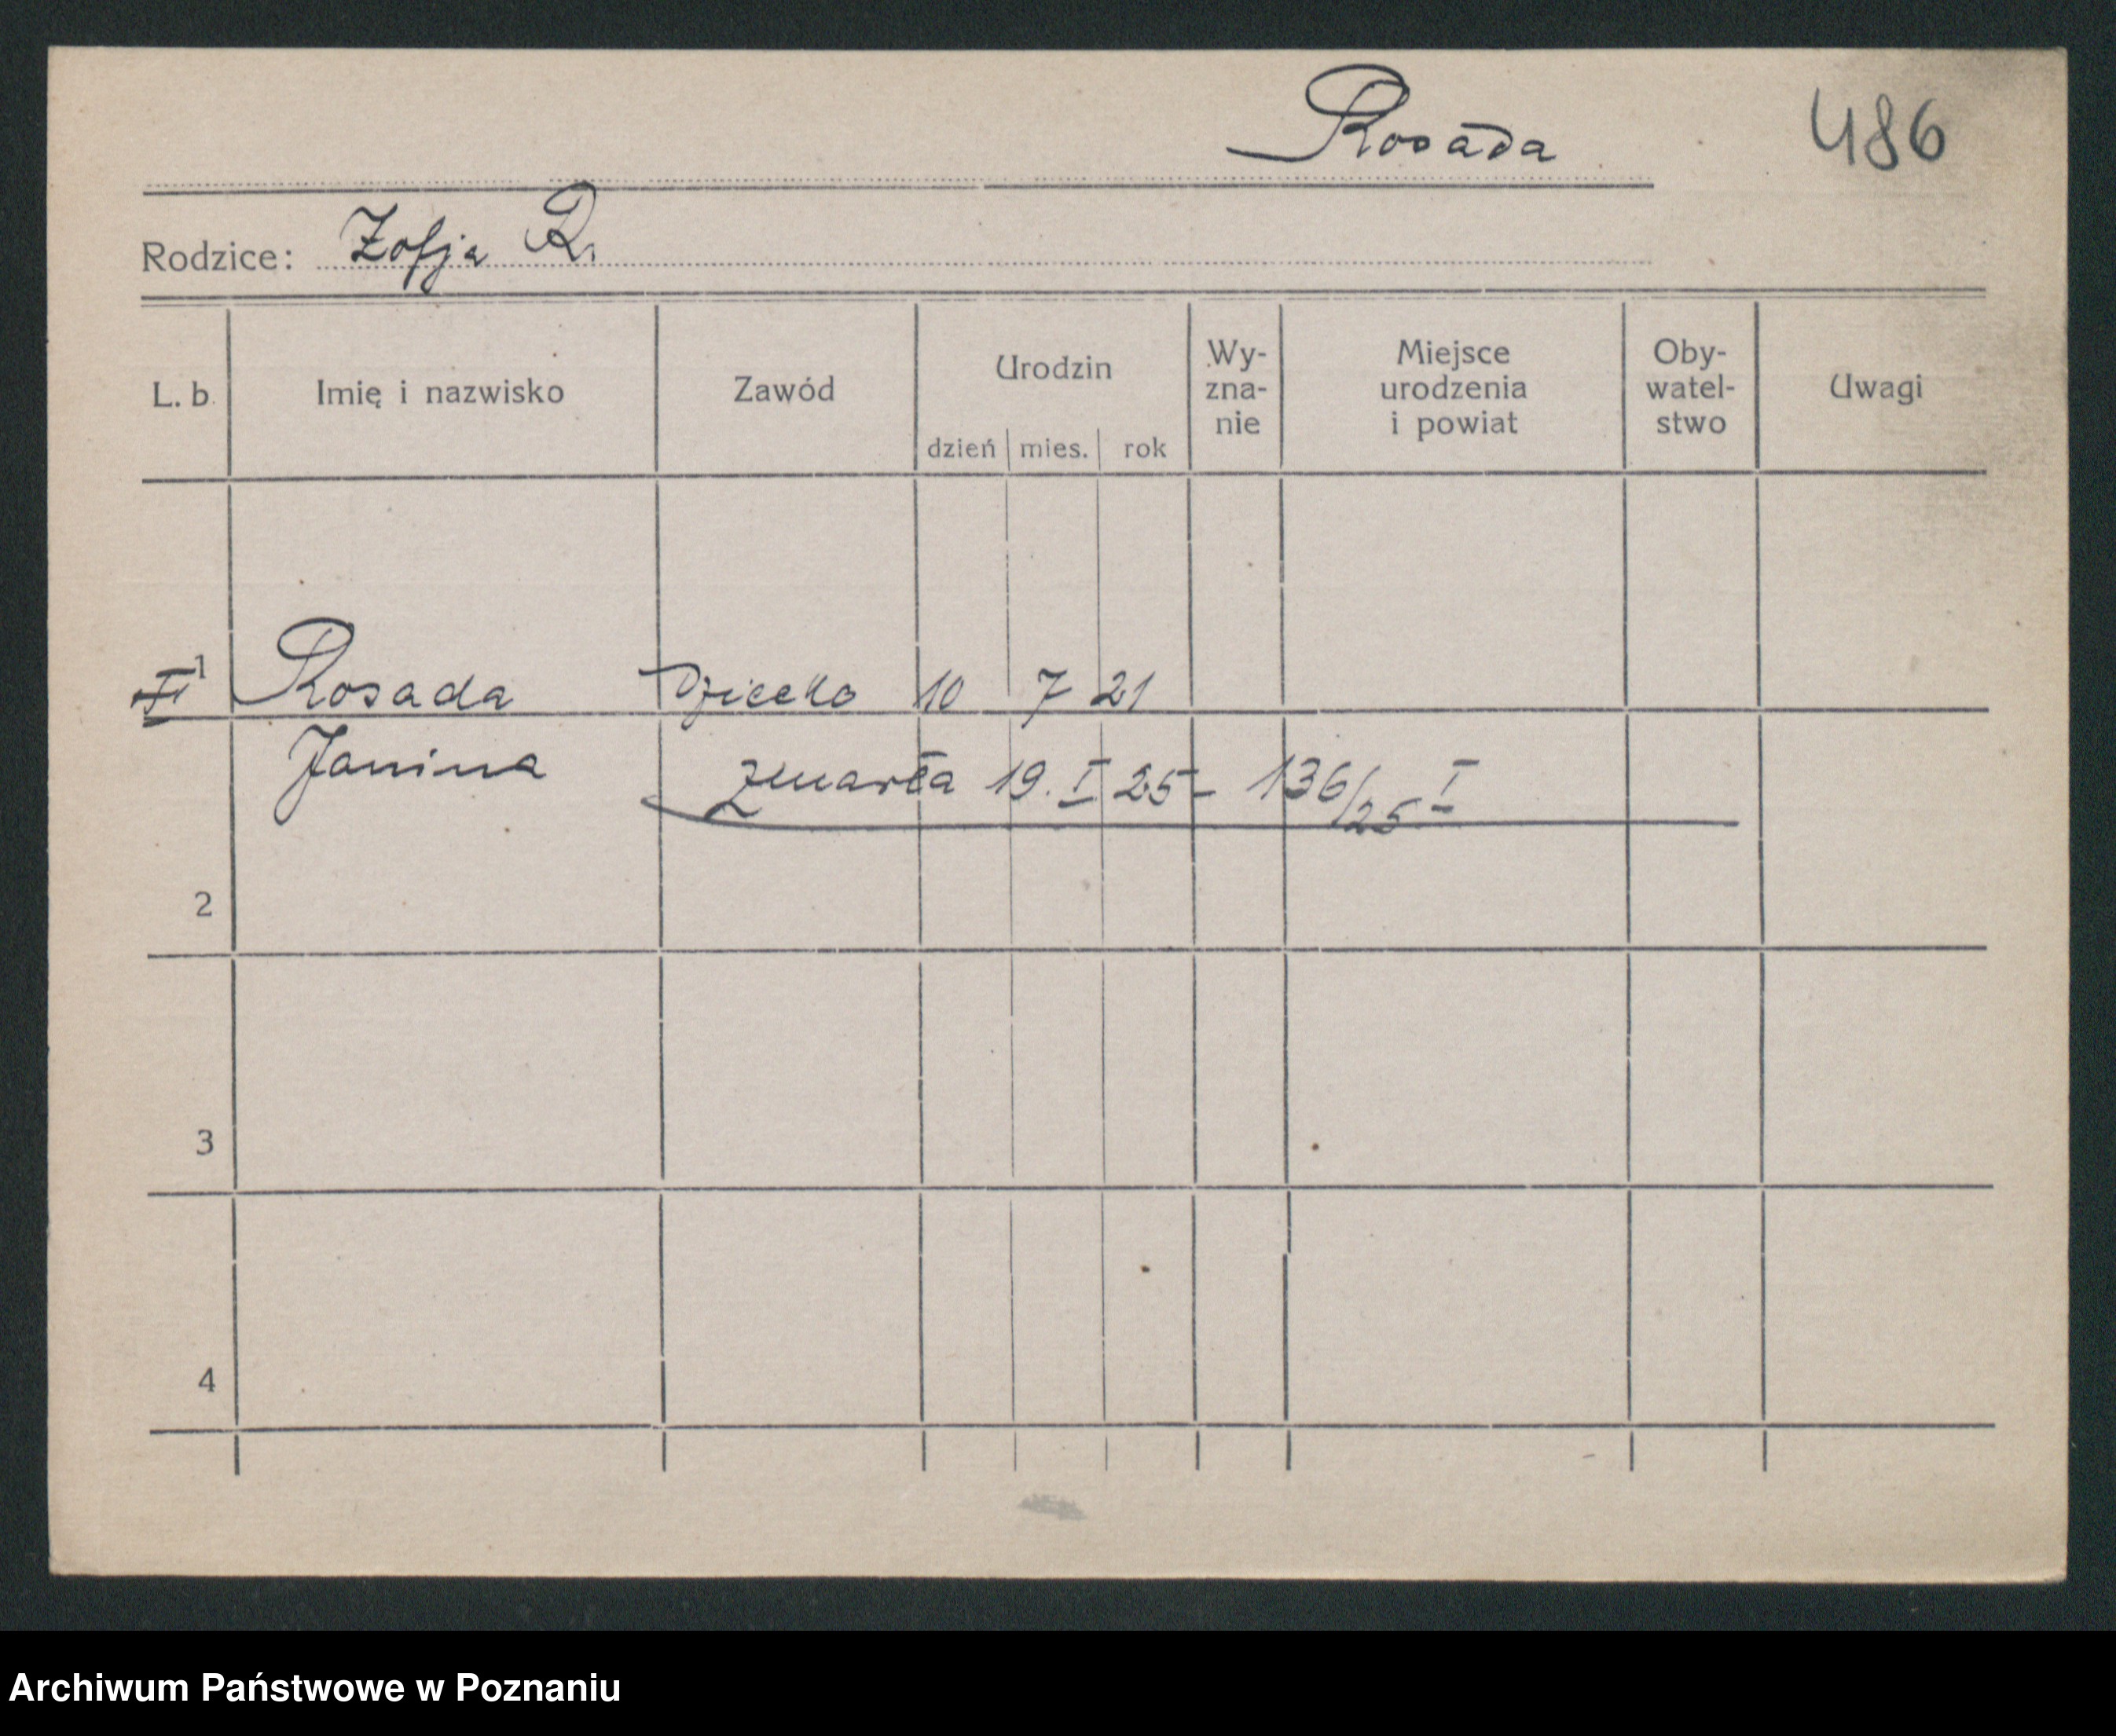 Rosada
486
Rodzice: Zofja R.
L. b. Imię i nazwisko Zawód Urodzin dzień mies. rok Wy-zna-nie Miejsce urodzenia i powiat Oby-watel-stwo Uwagi
1 Rosada Dziecko 10 7 21
Janina zmarła 19. I 25 - 136/25 I
2
3
4
Archiwum Państwowe w Poznaniu